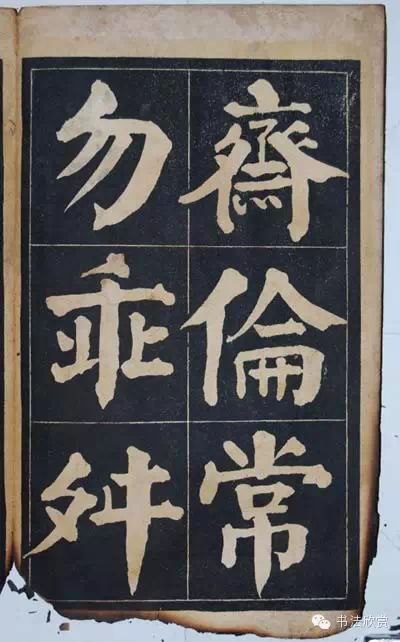 齋倫常
勿乖舛
书法欣赏